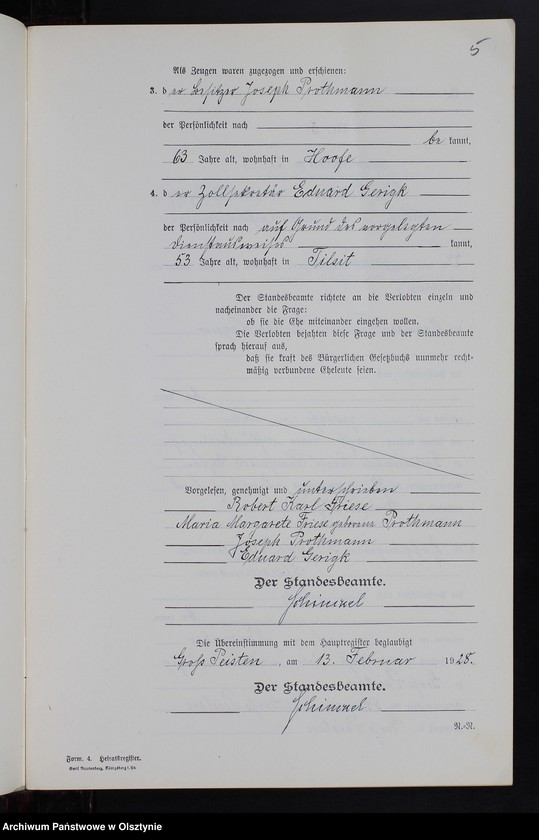 5
Als Zeugen waren zugezogen und erschienen:
3. der Besitzer Joseph Prothmann
der Persönlichkeit nach
bekannt,
63 Jahre alt, wohnhaft in Hoofe
4. der Zollsekretär Eduard Gerigk
der Persönlichkeit nach auf Grund des vorgelegten
Dienstausweises kannt,
53 Jahre alt, wohnhaft in Tilsit
Der Standesbeamte richtete an die Verlobten einzeln und
nacheinander die Frage:
ob sie die Ehe miteinander eingehen wollen.
Die Verlobten bejahten diese Frage und der Standesbeamte
sprach hierauf aus,
daß sie kraft des Bürgerlichen Gesetzbuchs nunmehr recht-
mäßig verbundene Eheleute seien.
Vorgelesen, genehmigt und unterschrieben
Robert Karl Friese
Maria Margarete Friese geborene Prothmann
Joseph Prothmann
Eduard Gerigk
Der Standesbeamte.
Schimmel
Die Übereinstimmung mit dem Hauptregister beglaubigt
Groß Peisten, am 13. Februar 1928.
Der Standesbeamte.
Schimmel
N.-N.
Form. 4. Heiratsregister.
Königsberg i. Pr.
Archiwum Państwowe w Olsztynie